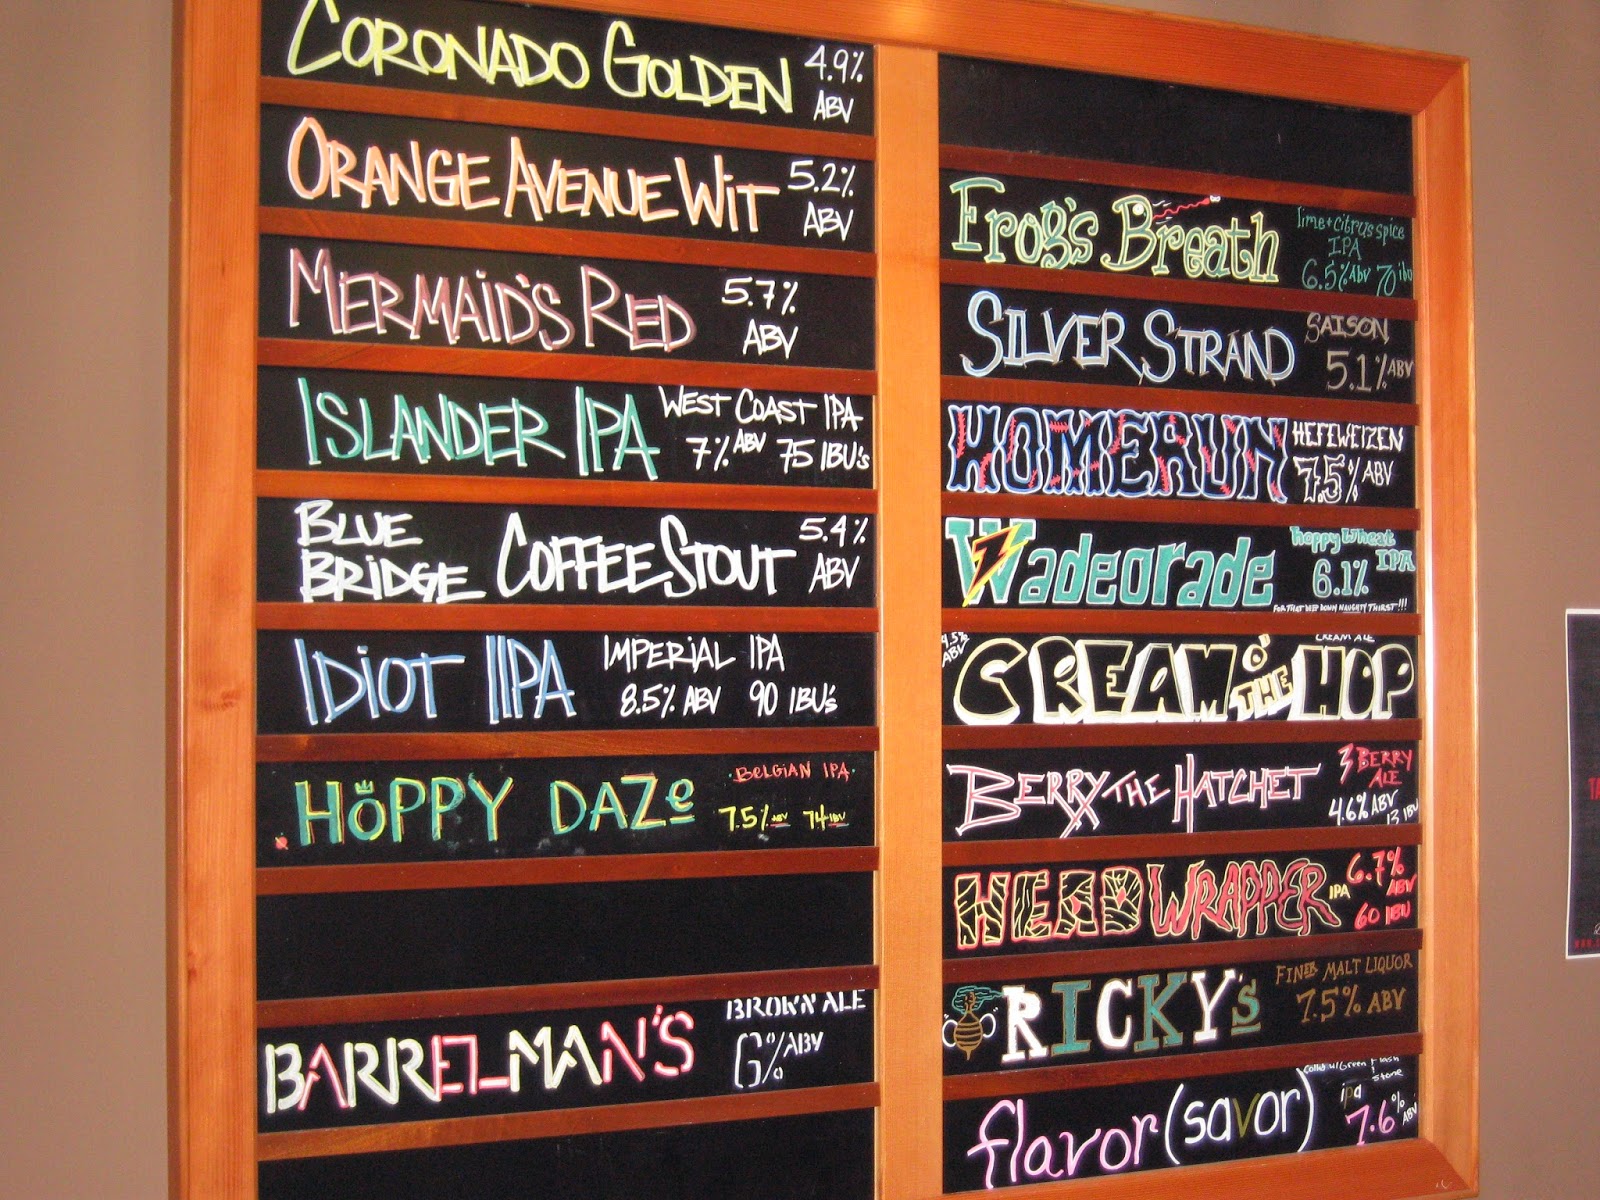 CORONADO GOLDEN 4.9% ABV
ORANGE AVENUE WIT 5.2% ABV
MERMAID'S RED 5.7% ABV
ISLANDER IPA WEST COAST IPA
7% ABV 75 IBU's
BLUE BRIDGE COFFEE STOUT 5.4% ABV
IDIOT IIPA IMPERIAL IPA
8.5% ABV 90 IBU's
HOPPY DAZe BELGIAN IPA
7.5% ABV 74 IBU
BARRELMAN'S BROWN ALE
6% ABV
Frog's Breath lime+citrus spice
IPA
6.5% ABV 70 ibu
SILVER STRAND SAISON
5.1% ABV
HOMERUN HEFEWEIZEN
7.5% ABV
Wadeorade hoppy wheat
IPA
6.1%
FOR THAT DEEP DOWN NAUGHTY THIRST!!!
4.5% ABV CREAM O' THE HOP CREAM ALE
BERRY THE HATCHET 3 BERRY
ALE
4.6% ABV
13 IBU
HEADWRAPPER IPA 6.7%
ABV
60 IBU
RICKY'S FINER MALT LIQUOR
7.5% ABV
flavor (savor) collab w/Green Flash
+ Stone
ipa
7.6% ABV